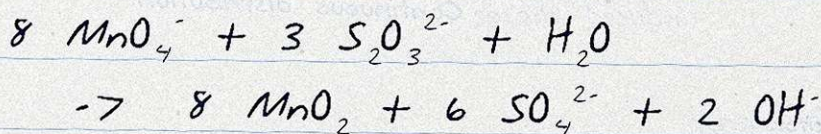 8 MnO₄⁻ + 3 S₂O₃²⁻ + H₂O
-> 8 MnO₂ + 6 SO₄²⁻ + 2 OH⁻